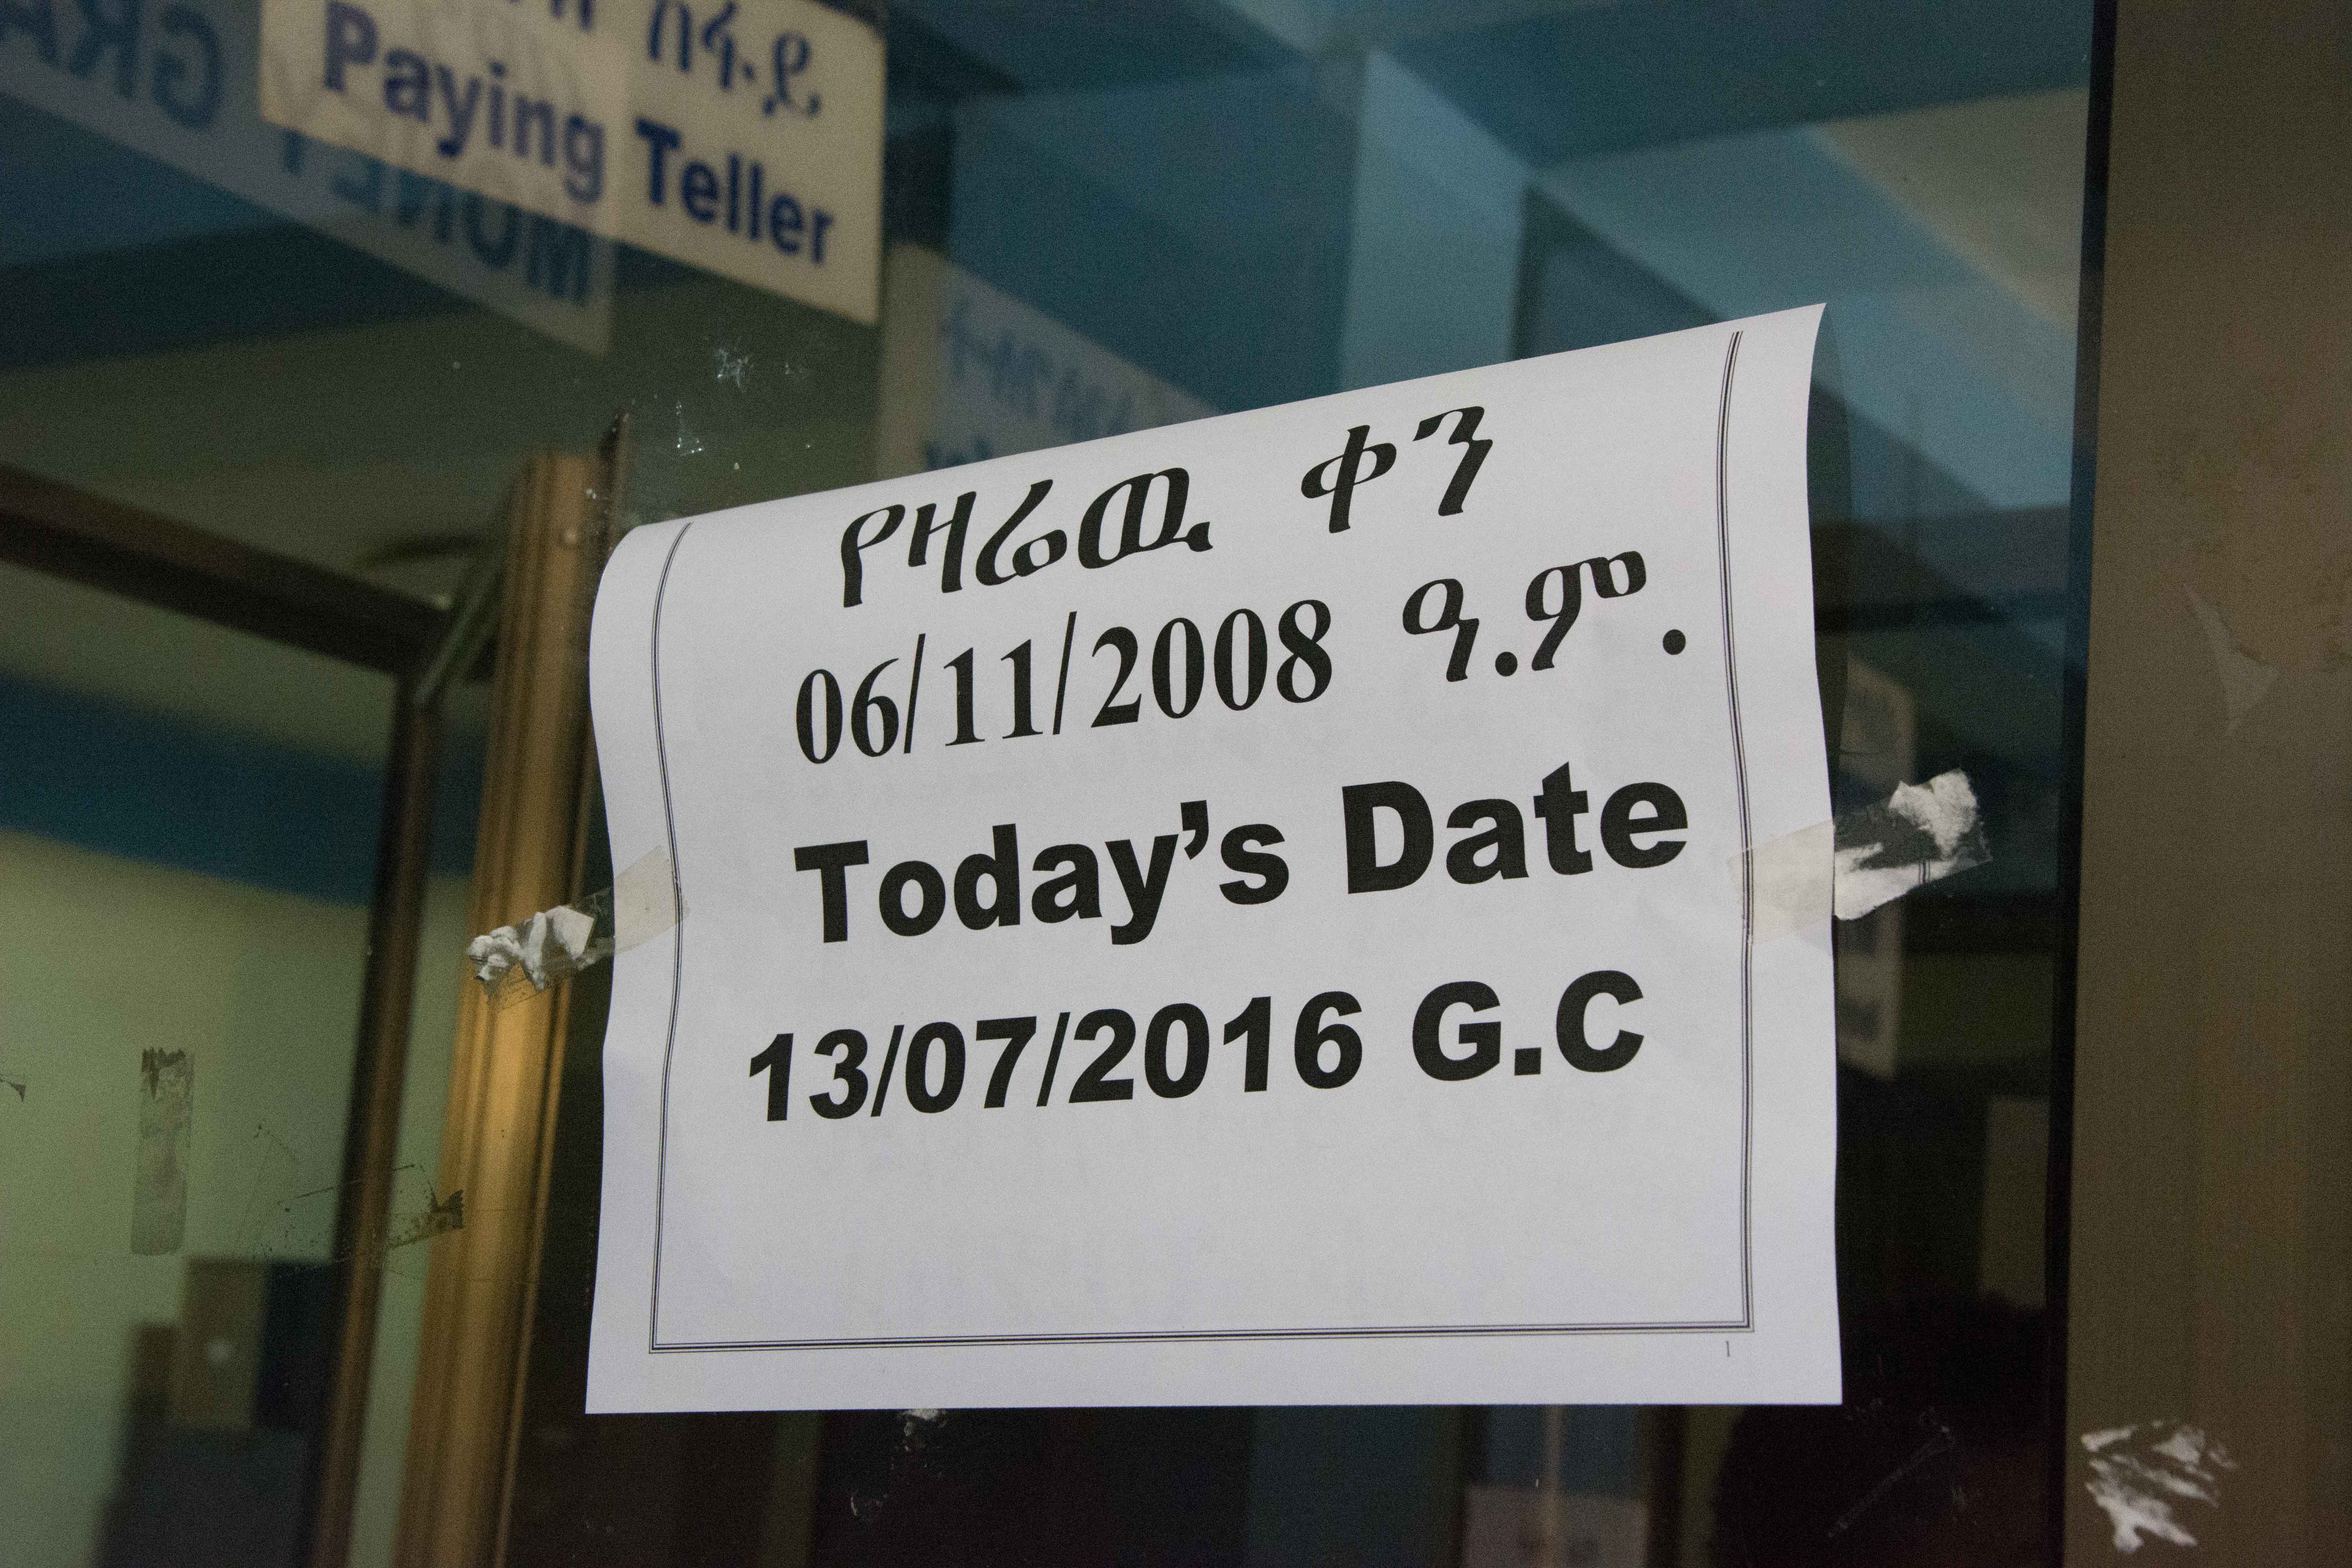 ከፋይ
Paying Teller
MONEY GRA
የዛሬው ቀን
06/11/2008 ዓ.ም.
Today's Date
13/07/2016 G.C
1